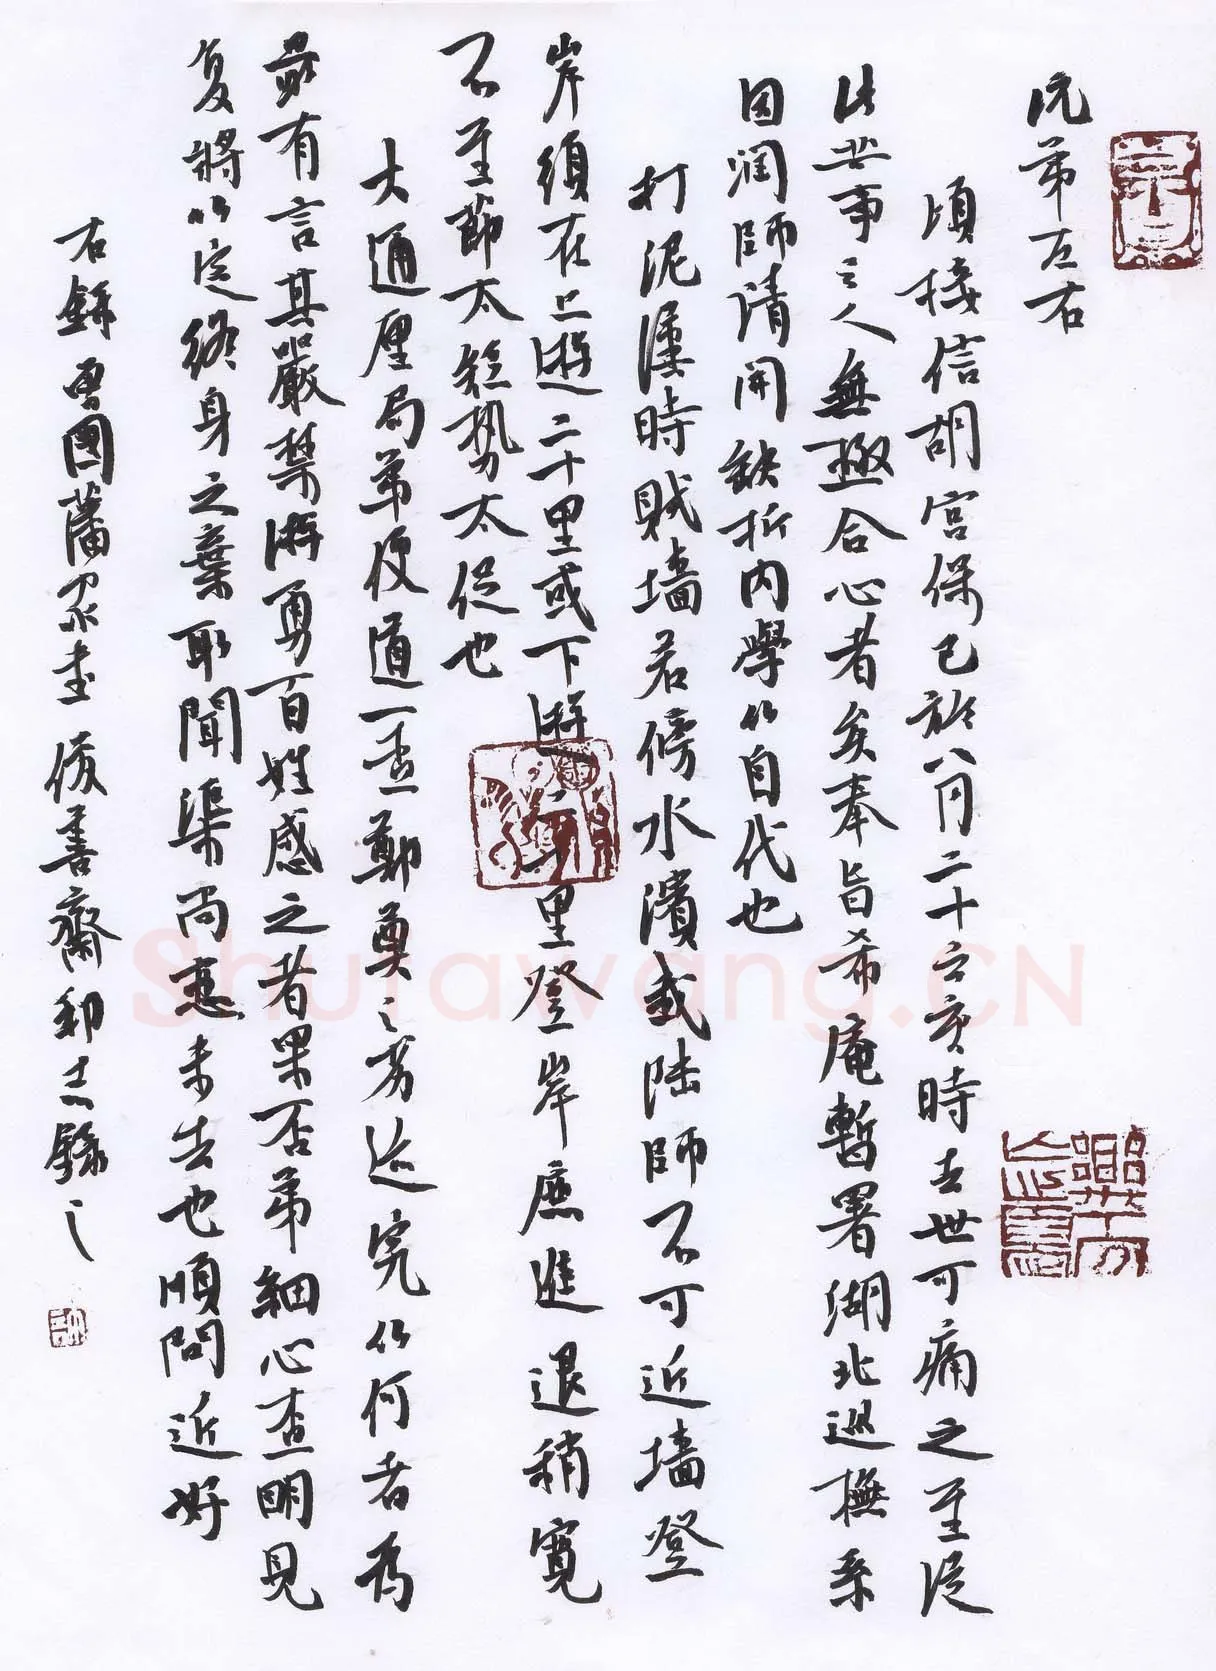 沅弟左右
頃接信胡宮保已於八月二十六亥時去世可痛之至從
此共事之人無極合心者矣奉旨希庵暫署湖北巡撫系
因潤師請開缺折內舉以自代也
打泥漢時賊墻若傍水濱或陸師不可近墻登
岸須在上游二十里或下游二十里登岸庶進退稍寬
不至節太短勢太促也
大通厘局弟便道一查鄭奠之劣迹究以何者為
最有言其嚴禁游勇百姓感之者果否弟細心查明見
复將以定終身之棄取聞渠尚戀未去也順問近好
右錄曾國藩家書 後善齋 志錄之
Shufawang.CN